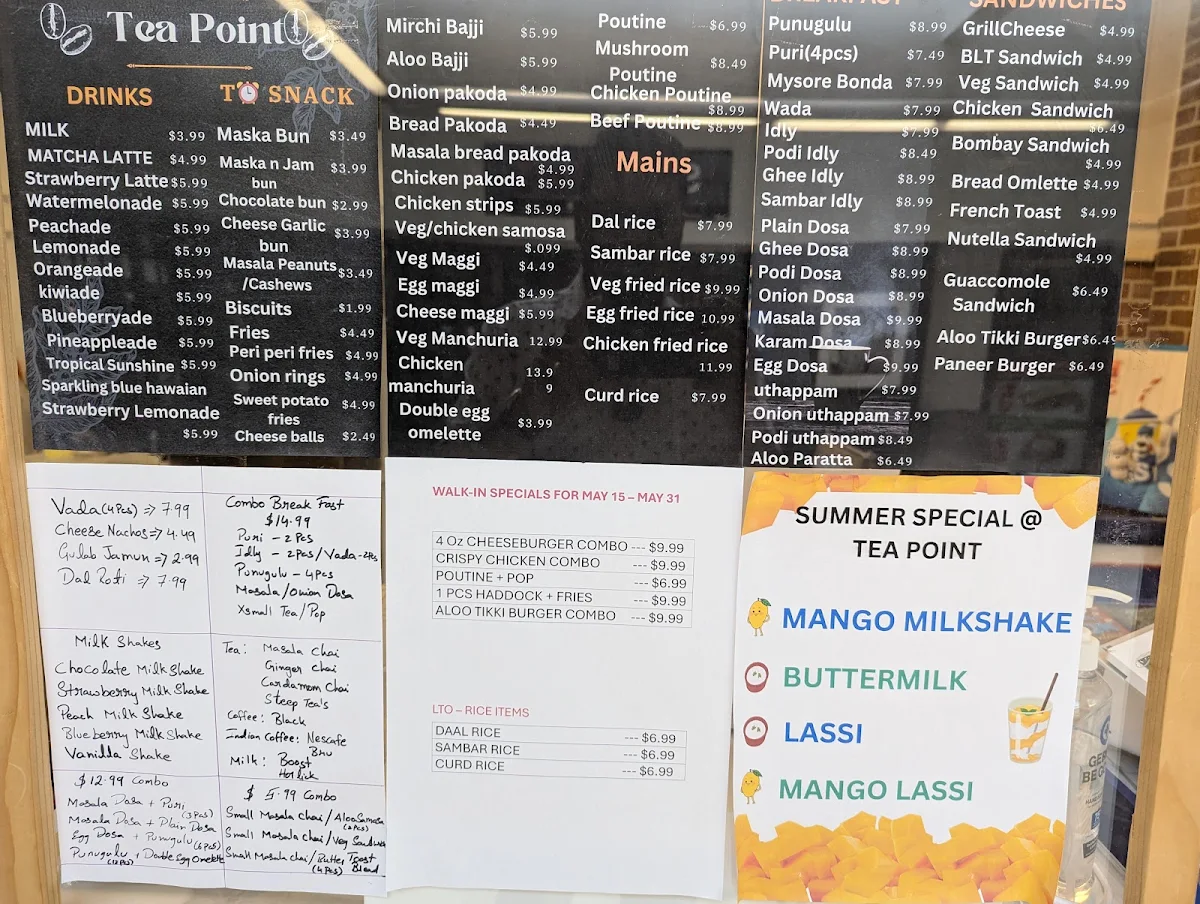 Tea Point
DRINKS
MILK $3.99
MATCHA LATTE $4.99
Strawberry Latte $5.99
Watermelonade $5.99
Peachade $5.99
Lemonade $5.99
Orangeade $5.99
kiwiade $5.99
Blueberryade $5.99
Pineappleade $5.99
Tropical Sunshine $5.99
Sparkling blue hawaian
Strawberry Lemonade
$5.99
TO SNACK
Maska Bun $3.49
Maska n Jam $3.99
bun
Chocolate bun $2.99
Cheese Garlic $3.99
bun
Masala Peanuts $3.49
/Cashews
Biscuits $1.99
Fries $4.49
Peri peri fries $4.99
Onion rings $4.99
Sweet potato $4.99
fries
Cheese balls $2.49
Mirchi Bajji $5.99
Aloo Bajji $5.99
Onion pakoda $4.99
Bread Pakoda $4.49
Masala bread pakoda
$4.99
Chicken pakoda $5.99
Chicken strips $5.99
Veg/chicken samosa
$.099
Veg Maggi $4.49
Egg maggi $4.99
Cheese maggi $5.99
Veg Manchuria 12.99
Chicken 13.9
manchuria 9
Double egg $3.99
omelette
Poutine $6.99
Mushroom $8.49
Poutine
Chicken Poutine
$8.99
Beef Poutine $8.99
Mains
Dal rice $7.99
Sambar rice $7.99
Veg fried rice $9.99
Egg fried rice 10.99
Chicken fried rice
11.99
Curd rice $7.99
BREAKFAST
Punugulu $8.99
Puri(4pcs) $7.49
Mysore Bonda $7.99
Wada $7.99
Idly $7.99
Podi Idly $8.49
Ghee Idly $8.99
Sambar Idly $8.99
Plain Dosa $7.99
Ghee Dosa $8.99
Podi Dosa $8.99
Onion Dosa $8.99
Masala Dosa $9.99
Karam Dosa $8.99
Egg Dosa $9.99
uthappam $7.99
Onion uthappam $7.99
Podi uthappam $8.49
Aloo Paratta $6.49
SANDWICHES
GrillCheese $4.99
BLT Sandwich $4.99
Veg Sandwich $4.99
Chicken Sandwich
$6.49
Bombay Sandwich
$4.99
Bread Omlette $4.99
French Toast $4.99
Nutella Sandwich
$4.99
Guaccomole $6.49
Sandwich
Aloo Tikki Burger $6.49
Paneer Burger $6.49
Vada (4Pcs) => 7.99
Cheese Nachos => 4.49
Gulab Jamun => 2.99
Dal Roti => 7.99
Combo Break Fast
$14.99
Puri - 2 Pcs
Idly - 2Pcs/Vada-2Pcs
Punugulu - 4Pcs
Masala/Onion Dosa
Xsmall Tea/Pop
Milk Shakes
Chocolate Milk Shake
Strawberry Milk Shake
Peach Milk Shake
Blueberry Milk Shake
Vanilla Shake
Tea: Masala Chai
Ginger Chai
Cardamom Chai
Steep Tea's
Coffee: Black
Indian Coffee: Nescafe
Bru
Milk: Boost
Horlick
$12.99 Combo
Masala Dosa + Puri
(3Pcs)
Masala Dosa + Plain Dosa
Egg Dosa + Punugulu (6Pcs)
Punugulu + Double Egg Omelette
(12Pcs)
$ 5.99 Combo
Small Masala chai/Aloo Samosa
(2Pcs)
Small Masala chai/Veg Sandwich
Small Masala chai/Butter Toast
(4Pcs) Bread
WALK-IN SPECIALS FOR MAY 15 – MAY 31
4 Oz CHEESEBURGER COMBO --- $9.99
CRISPY CHICKEN COMBO --- $9.99
POUTINE + POP --- $6.99
1 PCS HADDOCK + FRIES --- $9.99
ALOO TIKKI BURGER COMBO --- $9.99
LTO – RICE ITEMS
DAAL RICE --- $6.99
SAMBAR RICE --- $6.99
CURD RICE --- $6.99
SUMMER SPECIAL @
TEA POINT
MANGO MILKSHAKE
BUTTERMILK
LASSI
MANGO LASSI